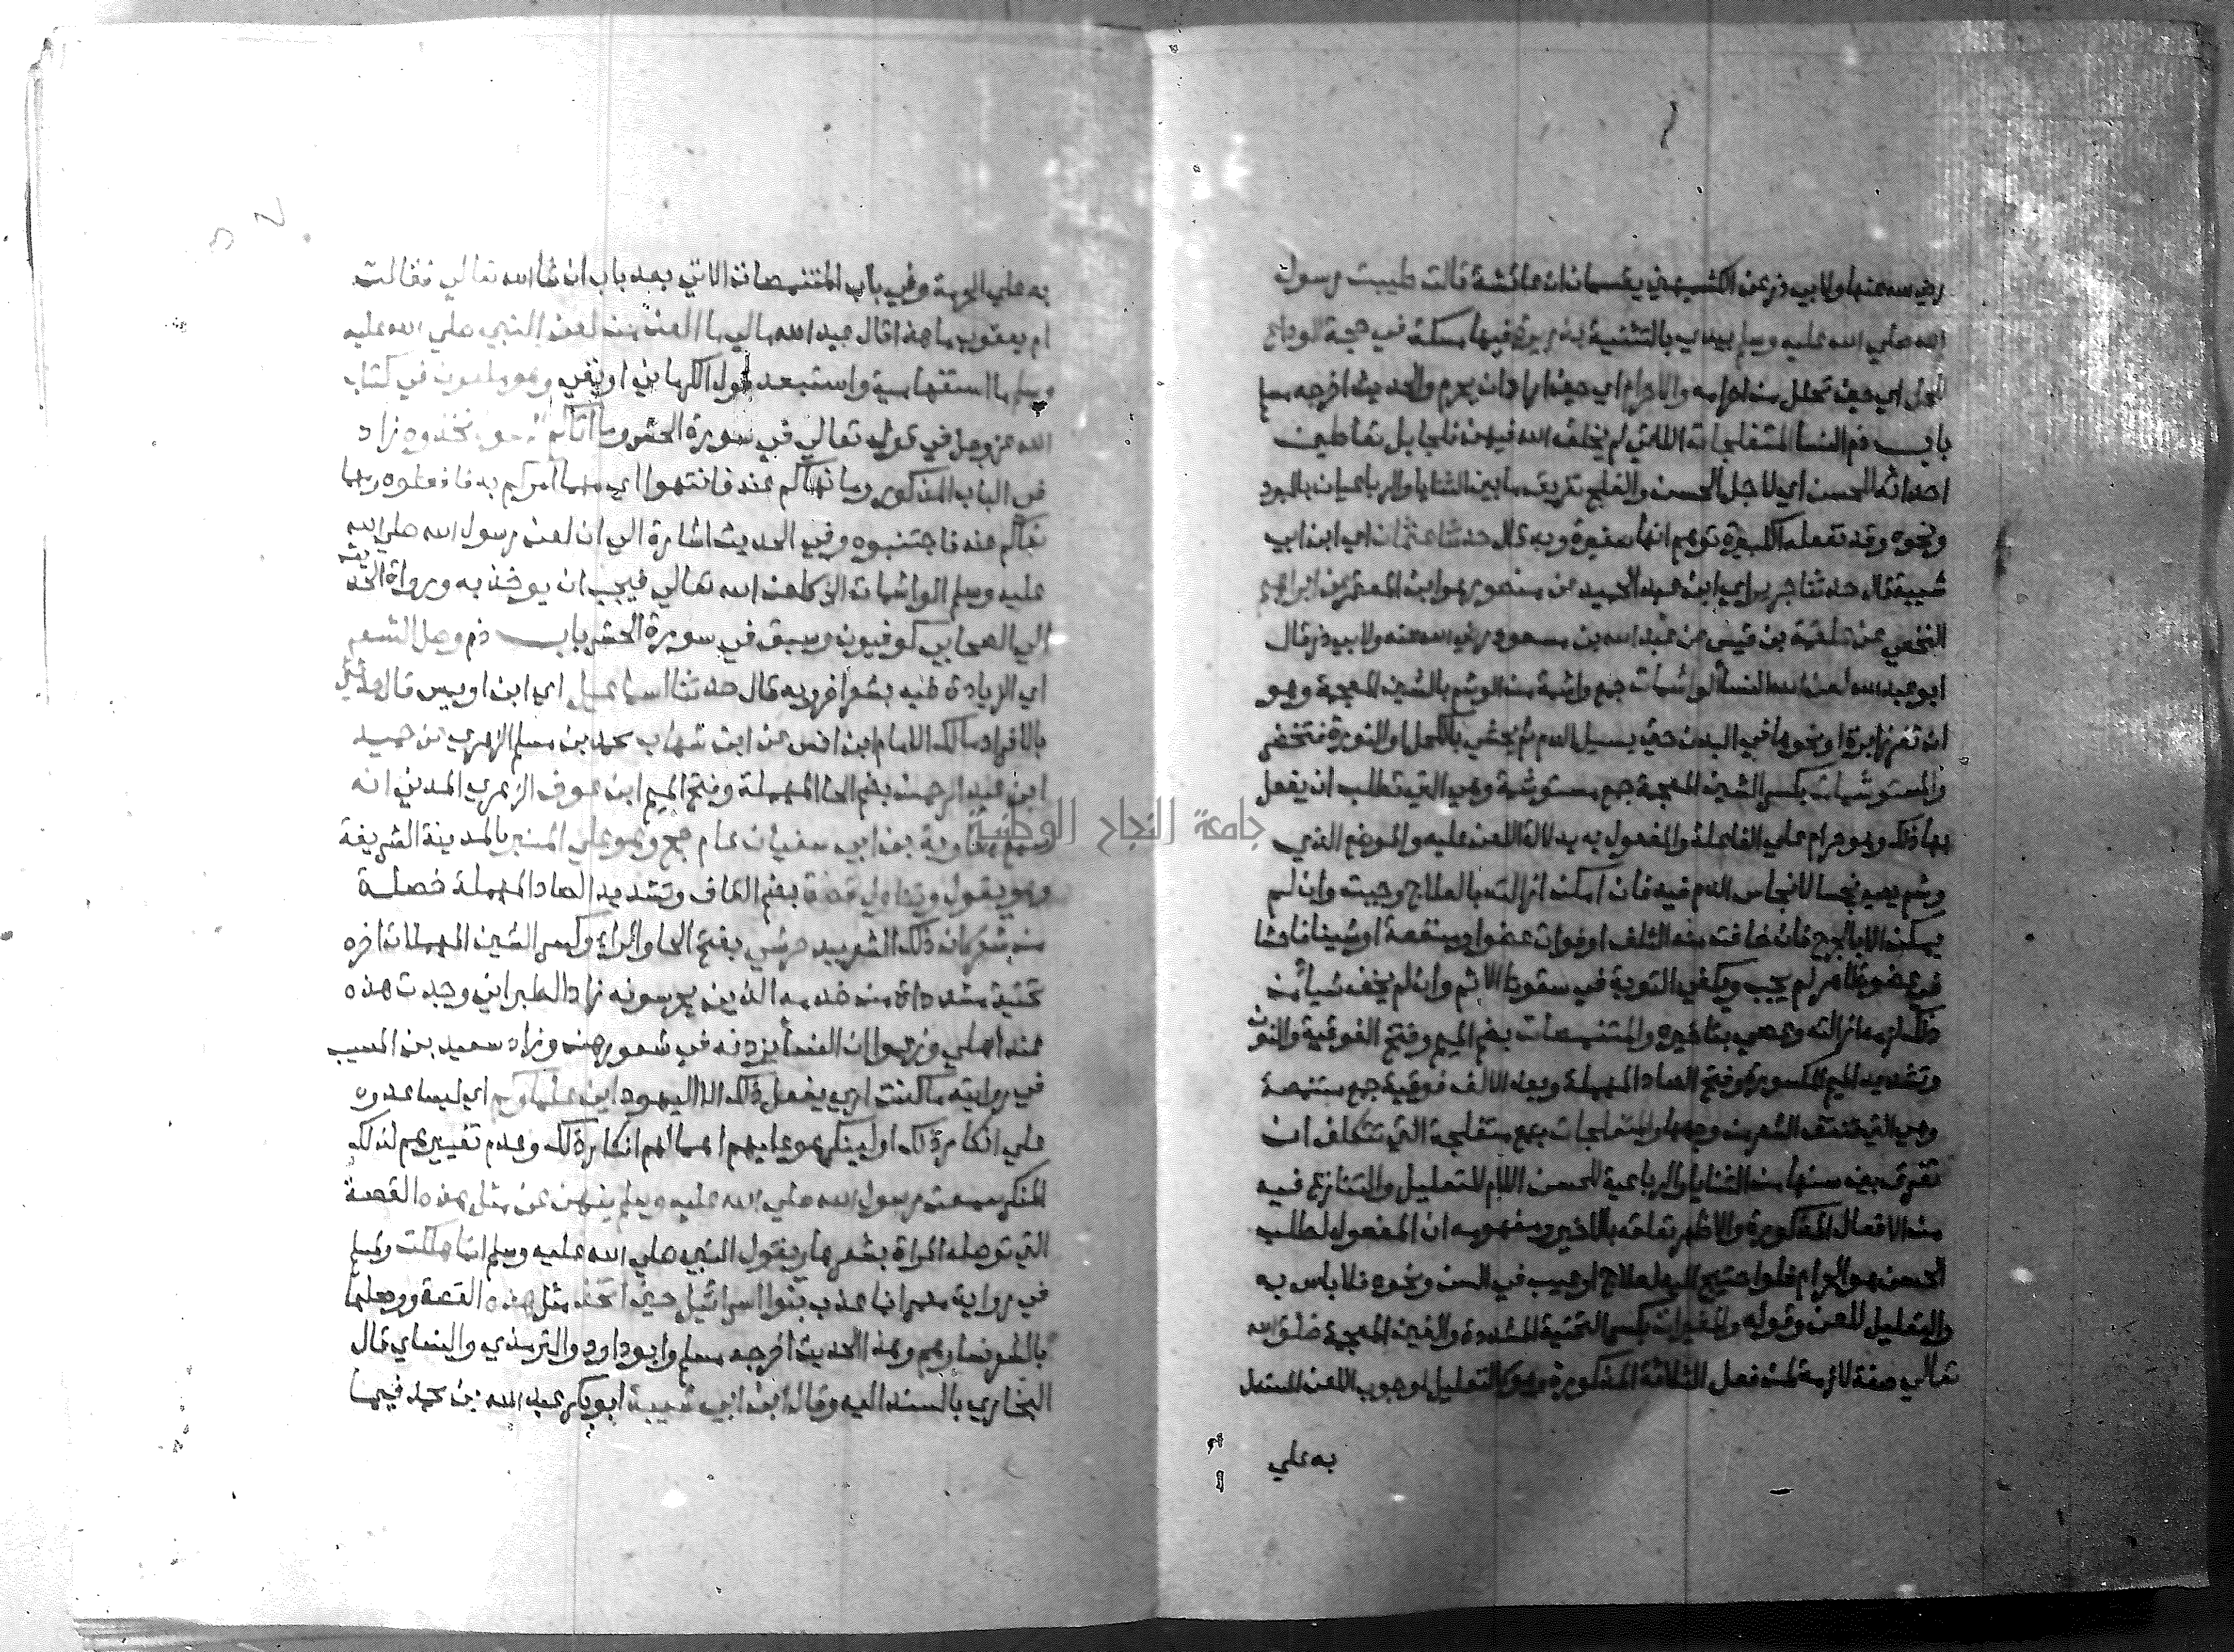 رضي الله عنها ولابي ذر عن الكشميهني يقسمان ان عائشة قالت طيبت رسول
الله صلي الله عليه وسلم بيدي بالتثنية بذريرة فيها مسكة في حجة الوداع
للحل اي حين تحلل من احرامه والاحرام اي حين اراد ان يحرم والحديث اخرجه مسلم
باب ذم النسا المتفلجات اللاتي لم يخلق الله فيهن فلجا بل تعاطين
احداثه للحسن اي لاجل الحسن والفلج تفريق ما بين الثنايا والرباعيات بالمبرد
ونحوه وقد تفعله الكبيرة توهم انها صغيرة وبه قال حدثنا عثمان اي ابن ابي
شيبة قال حدثنا جرير اي ابن عبد الحميد عن منصور هو ابن المعتمر عن ابراهيم
النخعي عن علقمة بن قيس عن عبد الله بن مسعود رضي الله عنه ولابي ذر قال
ابو عبد الله لعن الله النسأ الواشمات جمع واشمة من الوشم بالشين المعجمة وهو
ان تغرز ابرة او نحوها في البدن حتي يسيل الدم ثم يحشي بالكحل او النورة فتخضر
والمستوشمات بكسر الشين المعجمة جمع مستوشمة وهي التي تطلب ان يفعل
بها ذلك وهو حرام علي الفاعلة والمفعول به بدلالة اللعن عليه والموضع الذي
وشم يصير نجسا لانحباس الدم فيه فان امكن ازالته بالعلاج وجبت وان لم
يمكن الا بالجرح فان خافت منه التلف او فوات عضو او منفعة او شينا فاحشا
في عضو ظاهر لم يجب ويكفي التوبة في سقوط الاثم وان لم يخف شيأ من
ذلك لزمه ازالته وعصي بتاخيره والمتنمصات بضم الميم وفتح الفوقية والنون
وتشديد الميم المكسورة وفتح الصاد المهملة وبعد الالف فوقية جمع متنمصة
وهي التي تنتف الشعر من وجهها والمتفلجات جمع متفلجة التي تتكلف ان
تفرق بين سنها من الثنايا والرباعية للحسن اللام للتعليل والتنازع فيه
من الافعال المذكورة والاظهر تعلقه بالاخير ومفهومه ان المفعول لطلب
الحسن هو الحرام فلو احتيج اليه لعلاج او عيب في السن ونحوه فلا باس به
والتعليل للعن وقوله والمغيرات بكسر التحتية المشددة والغين المعجمة خلق الله
تعالي صفة لازمة لمن فعل الثلاثة المذكورة وهو كالتعليل لوجوب اللعن المستدل
به علي
به علي الحرمة وفي باب المتنمصات الاتي بعد باب ان شا الله تعالي فقالت
ام يعقوب ما هذا قال عبد الله مالي ما العن من لعن النبي صلي الله عليه
وسلم ما استفهامية واستبعد قول الكرماني او نفي وهو ملعون في كتاب
الله عز وجل في قوله تعالي في سورة الحشر وما آتاكم الرسول فخذوه زاد
في الباب المذكور وما نهاكم عنه فانتهوا اي مهما امركم به فافعلوه ومهما
نهاكم عنه فاجتنبوه وفي الحديث اشارة الي ان لعن رسول الله صلي الله
عليه وسلم الواشمات الخ كلعن الله تعالي فيجب ان يوخذ به ورواة الحديث
الي الصحابي كوفيون وسبق في سورة الحشر باب ذم وصل الشعر
اي الزيادة فيه بشعر اخر وبه قال حدثنا اسماعيل اي ابن اويس قال حدثني
بالافراد مالك الامام ابن انس عن ابن شهاب محمد بن مسلم الزهري عن حميد
ابن عبد الرحمن بضم الحا المهملة وفتح الميم ابن عوف الزهري المدني انه
سمع معاوية بن ابي سفيان عام حج وهو علي المنبر بالمدينة الشريفة
وهو يقول وتناول قصة بضم القاف وتشديد الصاد المهملة خصلة
من شعر كانت ذلك الشعر بيد حرسي بفتح الحا والراء وكسر السين المهملات اخره
تحتية مشددة من خدمه الذين يحرسونه زاد الطبراني وجدت هذه
عند اهلي وزعموا ان النسأ يزدنه في شعورهن وزاد سعيد بن المسيب
في روايته ما كنت اري يفعل ذلك الا اليهود اين علماؤكم اي ليساعدوه
علي انكار ذلك او لينكر عليهم اهمالهم انكار ذلك وعدم تغييرهم لذلك
المنكر سمعت رسول الله صلي الله عليه وسلم ينهي عن مثل هذه القصة
التي توصله المراة بشعرها ويقول النبي صلي الله عليه وسلم انما هلكت ولمسلم
في رواية معمر انما عذب بنوا اسرائيل حين اتخذ مثل هذه القصة ووصلها
بالشعر نساوهم وهذا الحديث اخرجه مسلم وابو داود والترمذي والنساي قال
البخاري بالسند اليه وقال ابن ابي شيبة ابو بكر عبد الله بن محمد فيما
جامعة النجاح الوطنية